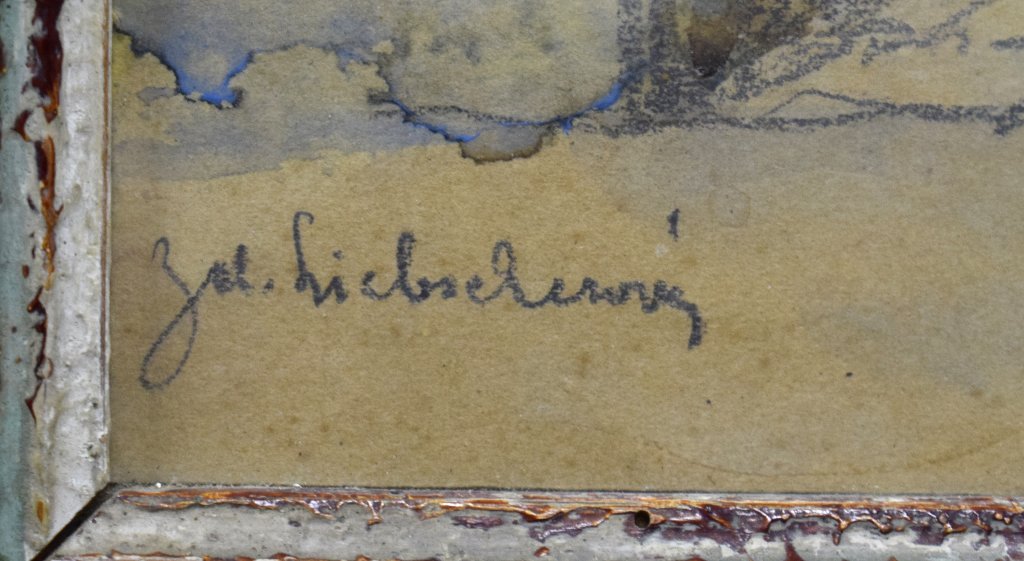 Zd. Liebscherová